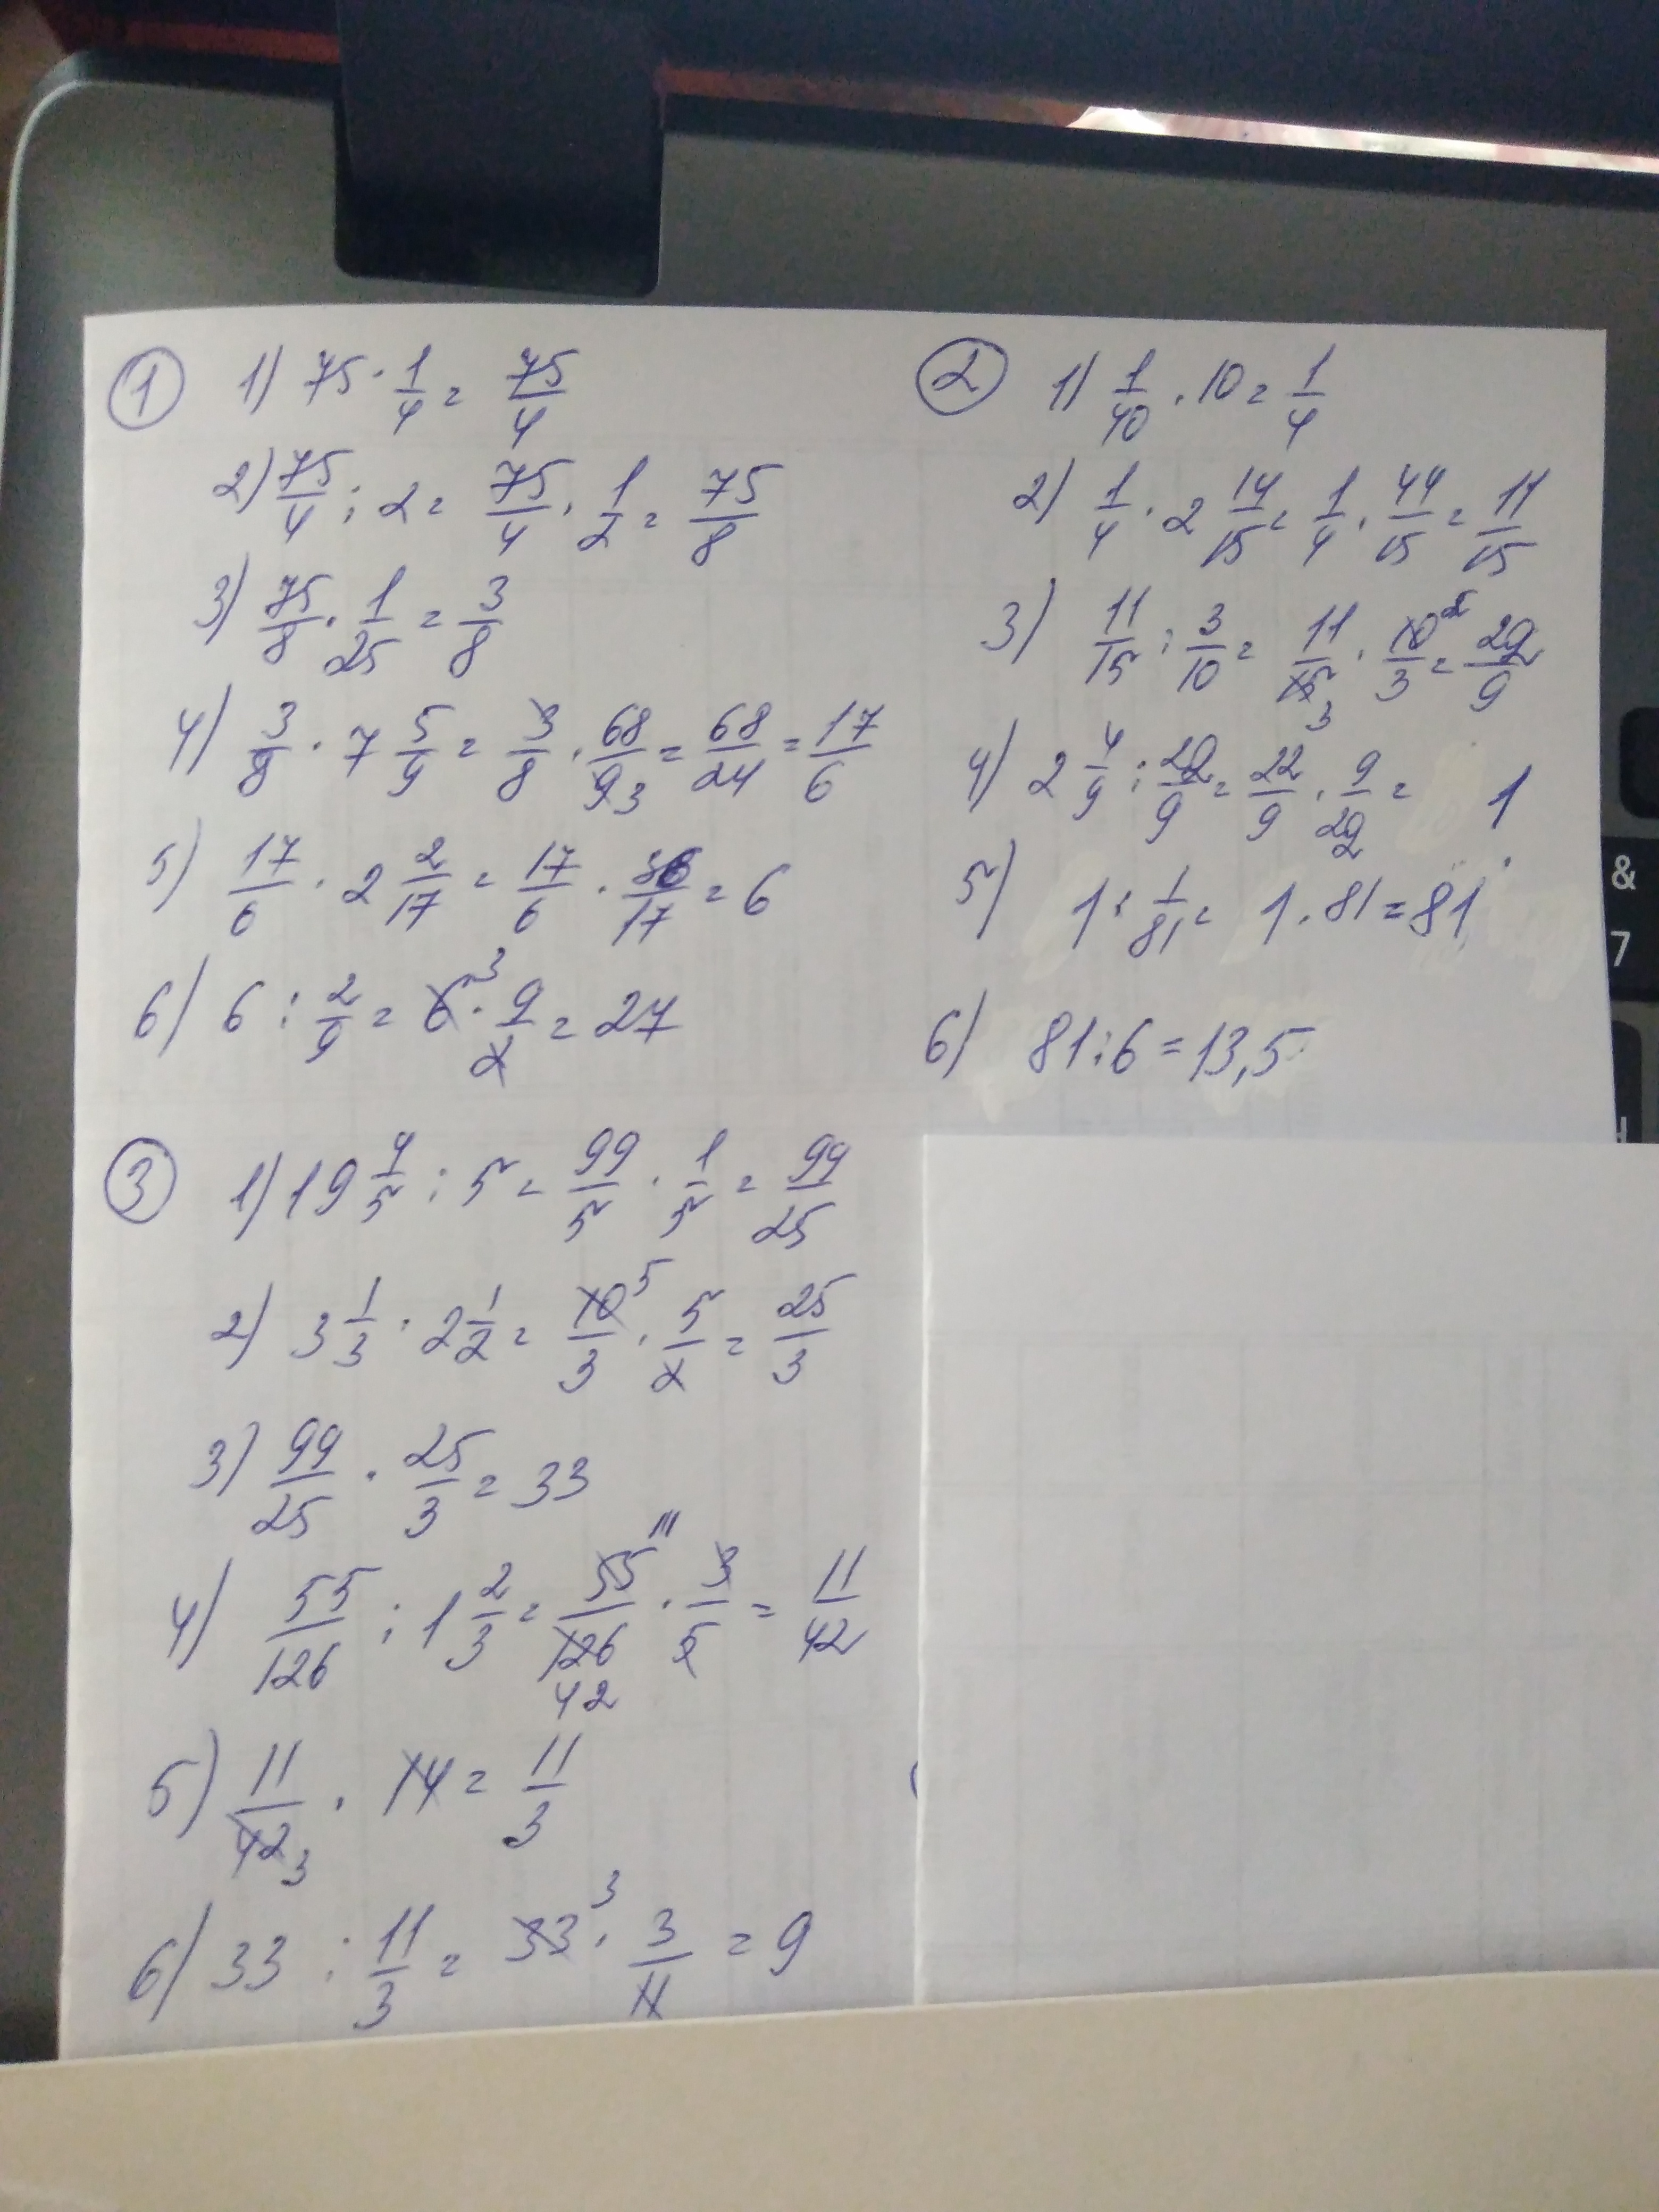 ① 1) 75 · 1/4 = 75/4
2) 75/4 : 2 = 75/4 · 1/2 = 75/8
3) 75/8 · 1/25 = 3/8
4) 3/8 · 7 5/9 = 3/8 · 68/9 3 = 68/24 = 17/6
5) 17/6 · 2 2/17 = 17/6 · 36/17 = 6
6) 6 : 2/9 = 6 3 · 9/2 = 27
② 1) 1/40 · 10 = 1/4
2) 1/4 · 2 14/15 = 1/4 · 44/15 = 11/15
3) 11/15 : 3/10 = 11/15 3 · 10 2/3 = 22/9
4) 2 4/9 : 22/9 = 22/9 · 9/22 = 1
5) 1 : 1/81 = 1 · 81 = 81
6) 81 : 6 = 13,5
③ 1) 19 4/5 : 5 = 99/5 · 1/5 = 99/25
2) 3 1/3 · 2 1/2 = 10 5/3 · 5/2 = 25/3
3) 99/25 · 25/3 = 33
4) 55/126 : 1 2/3 = 55 11/126 42 · 3/5 = 11/42
5) 11/42 3 · 14 = 11/3
6) 33 : 11/3 = 33 3 · 3/11 = 9
&
7